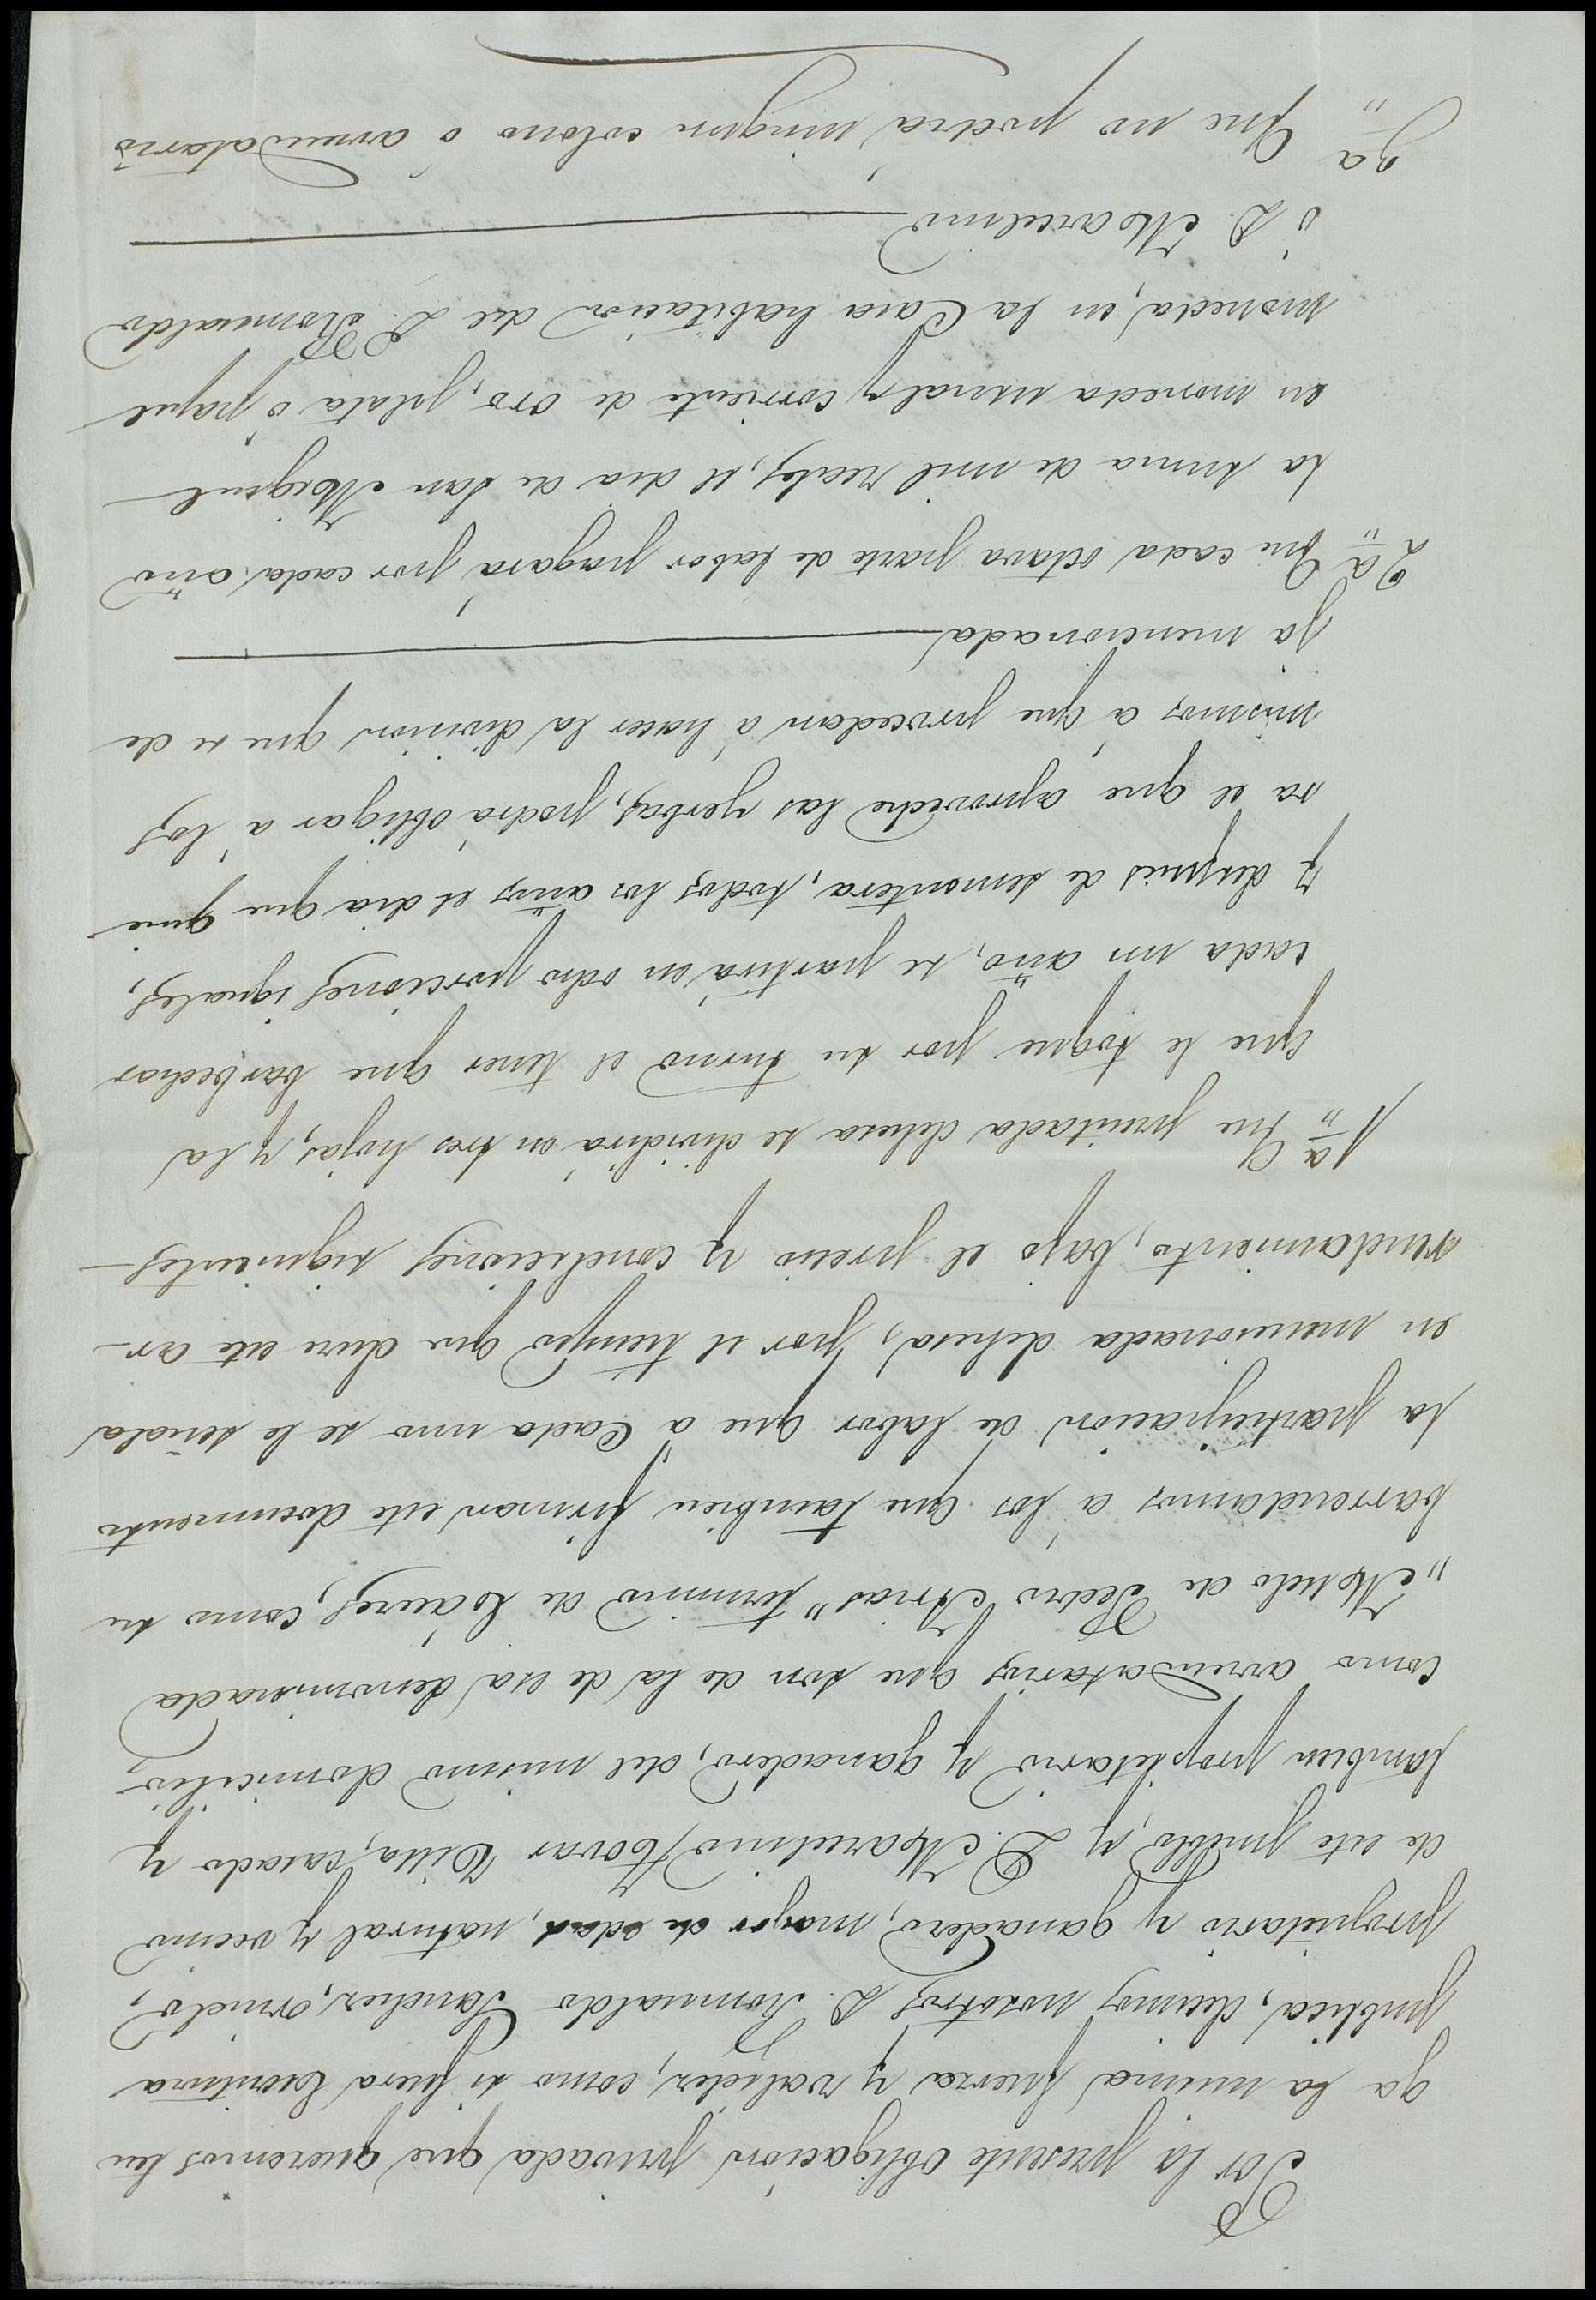 Por la presente obligacion privada que queremos ten
ga la misma fuerza y valider, como si fuera Escritura
publica, decimos nosotros D. Romualdo Sanchez, viudo,
propietario y ganadero, mayor de edad, natural y vecino
de este pueblo, y D. Marcelino Tovar Villa, casado y
tambien propietario y ganadero, del mismo domicilio,
como arrendatarios que son de la de esa denominada
"Mohedo de Pedro Arias" termino de Cáceres, como su
barrendamos á los que tambien firman este documento
la participacion de labor que á Cada uno se le señala
en mencionada dehesa, por el tiempo que dure este ar-
rendamiento, bajo el precio y condiciones siguientes-
1ª Que precitada dehesa se dividirá en tres hojas, y la
que le toque por su turno el tener que barbechar
cada un año, se partirá en ocho porciones iguales,
y despues de sementera, todos los años el dia que quie
ra el que aproveche las yerbas, podrá obligar á los
mismos á que procedan á hacer la division que se de
ja mencionada
2ª Que cada octava parte de labor pagará por cada año
la suma de mil reales, el dia de San Miguel
en moneda usual y corriente de oro, plata ó papel
moneda, en la Casa habitacion de D. Romualdo
ó D. Marcelino
3ª Que no podrá ningun colono ó arrendatario